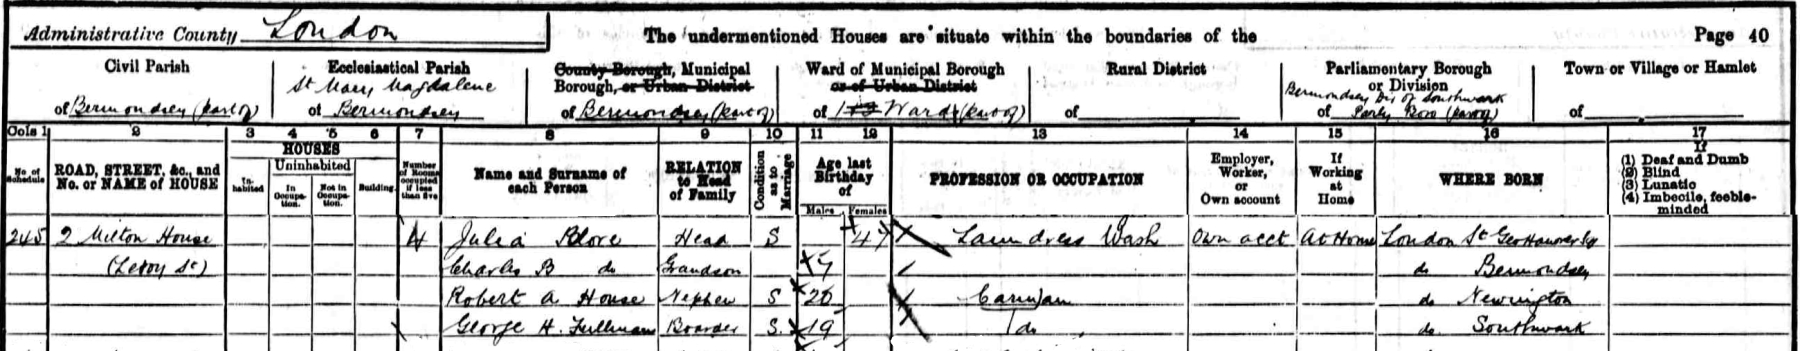 Administrative County London The undermentioned Houses are situate within the boundaries of the Page 40
Civil Parish
of Bermondsey (part of)
Ecclesiastical Parish
St Mary Magdalene
of Bermondsey
County Borough, Municipal
Borough, or Urban District
of Bermondsey (part of)
Ward of Municipal Borough
or of Urban District
of Ward (part of)
Rural District
of
Parliamentary Borough
or Division
Bermondsey Div of Southwark
of Parly Boro (part of)
Town or Village or Hamlet
of
Cols 1 2 3 4 5 6 7 8 9 10 11 12 13 14 15 16 17
No. of Schedule
ROAD, STREET, &c., and
No. or NAME of HOUSE
HOUSES
In-habited
Uninhabited
In Occupa-tion.
Not in Occupa-tion.
Building.
Number of Rooms occupied if less than five
Name and Surname of
each Person
RELATION
to Head
of Family
Condition as to Marriage
Age last
Birthday
of
Males Females
PROFESSION OR OCCUPATION
Employer,
Worker,
or
Own account
If
Working
at
Home
WHERE BORN
If
(1) Deaf and Dumb
(2) Blind
(3) Lunatic
(4) Imbecile, feeble-
minded
245 2 Milton House 4 Julia Head S 47 Laundress Wash Own acct At Home London St Geo Hanover Sq
(Leroy St) Charles B do Grandson do Bermondsey
Robert A House Nephew S 20 Carman do Newington
George H. Fullman Boarder S. 19 do do Southwark